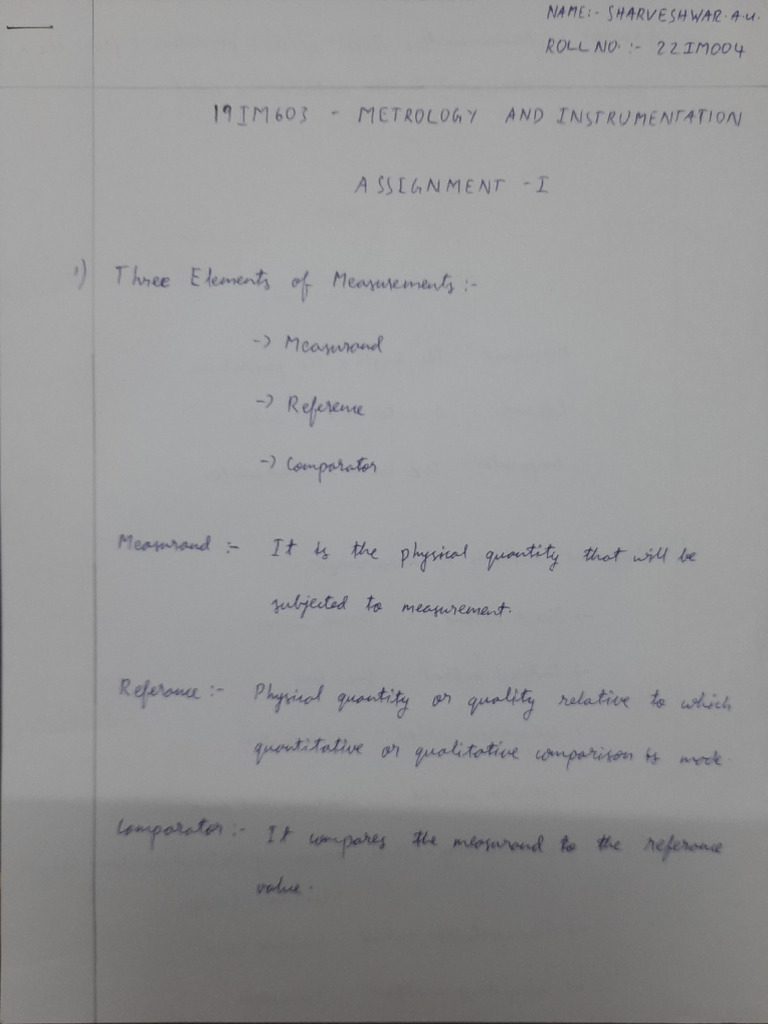 NAME:- SHARVESHWAR.A.U.
ROLL NO. :- 22IM004
19IM603 - METROLOGY AND INSTRUMENTATION
ASSIGNMENT - I
1) Three Elements of Measurements :-
-> Measurand
-> Reference
-> Comparator
Measurand :- It is the physical quantity that will be
subjected to measurement.
Referance :- Physical quantity or quality relative to which
quantitative or qualitative comparison is made.
Comparator :- It compares the measurand to the referance
value.